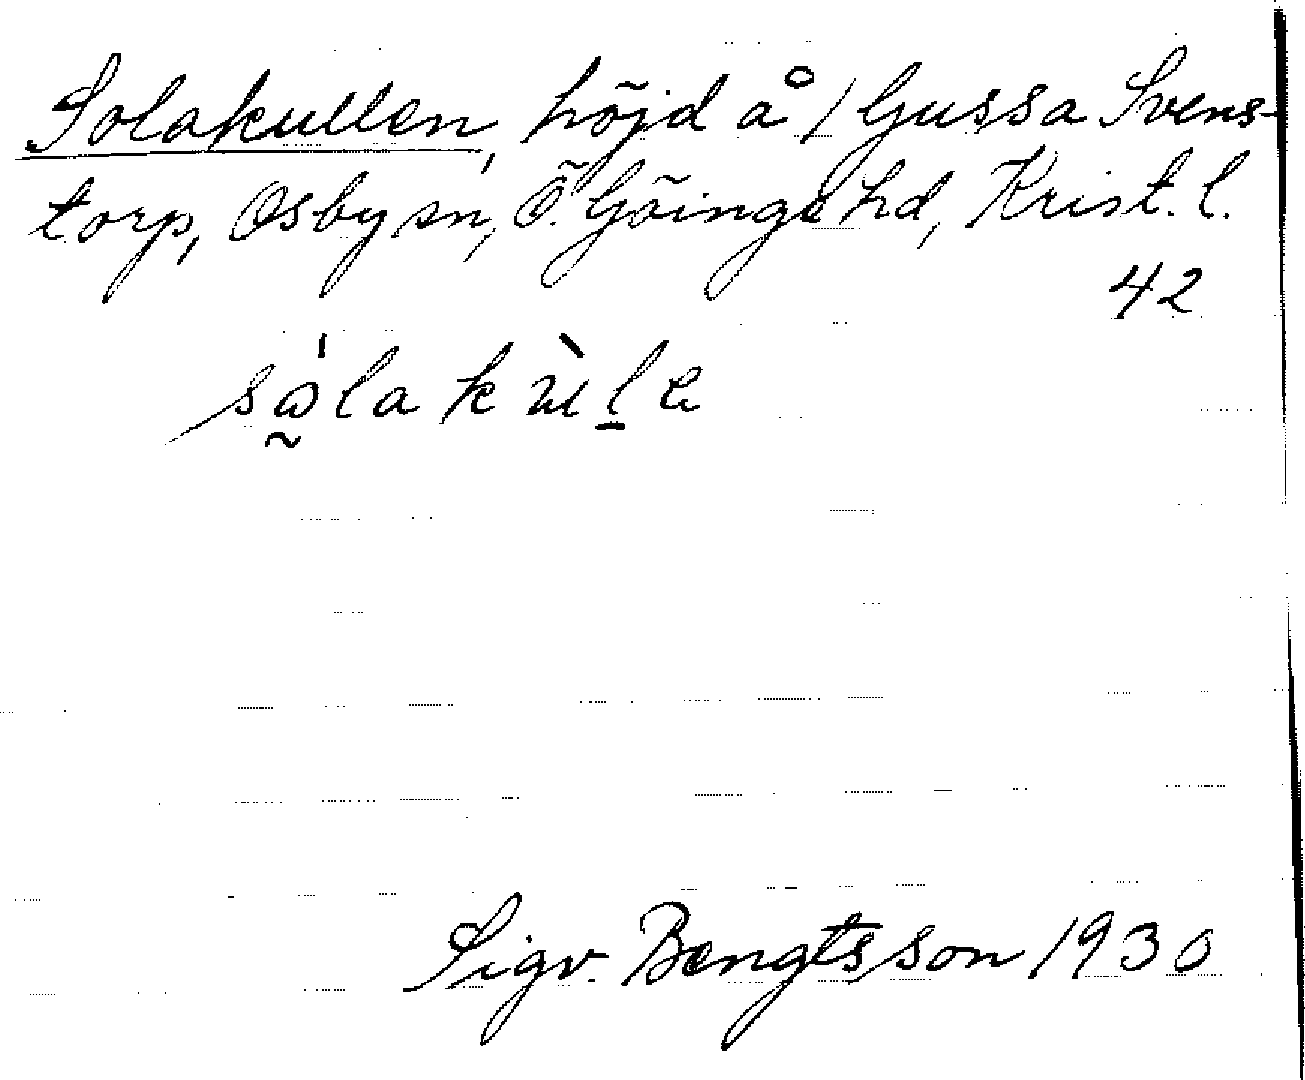 Solakullen, höjd å 1 Gussa Svens-
torp, Osby sn, Ö. Göinge hd, Krist. l.
42
Sigv. Bengtsson 1930